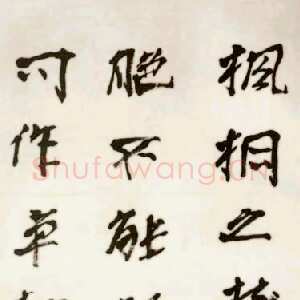 楓桐之
脃不能
作草
Shufawang.CN